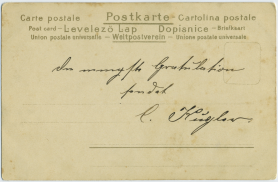 Carte postale Postkarte Cartolina postale
Post card — Levelező Lap Dopisnice — Briefkort
Union postale universelle — Weltpostverein — Unione postale universale.
Gratulation
sendet
C. Kügler